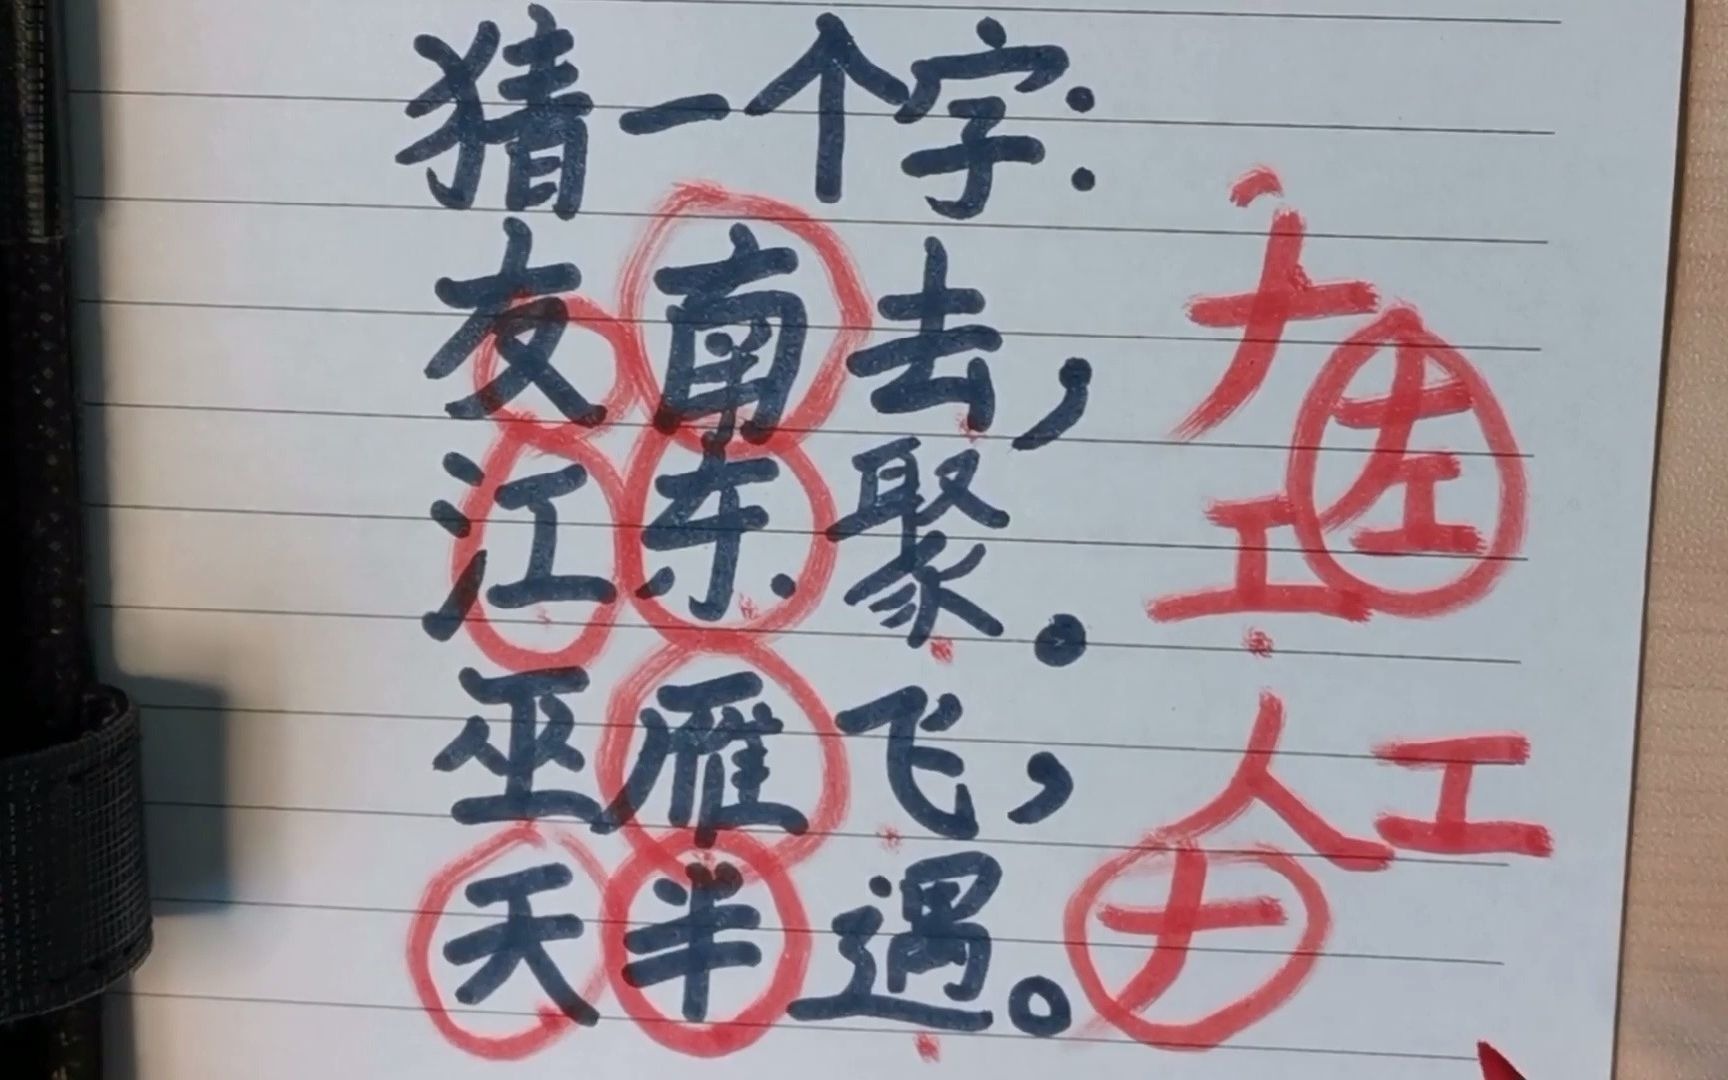 猜一个字:
友南去,
江东聚.
巫雁飞,
天半遇。
𠂇
工
左
人工
𠂇